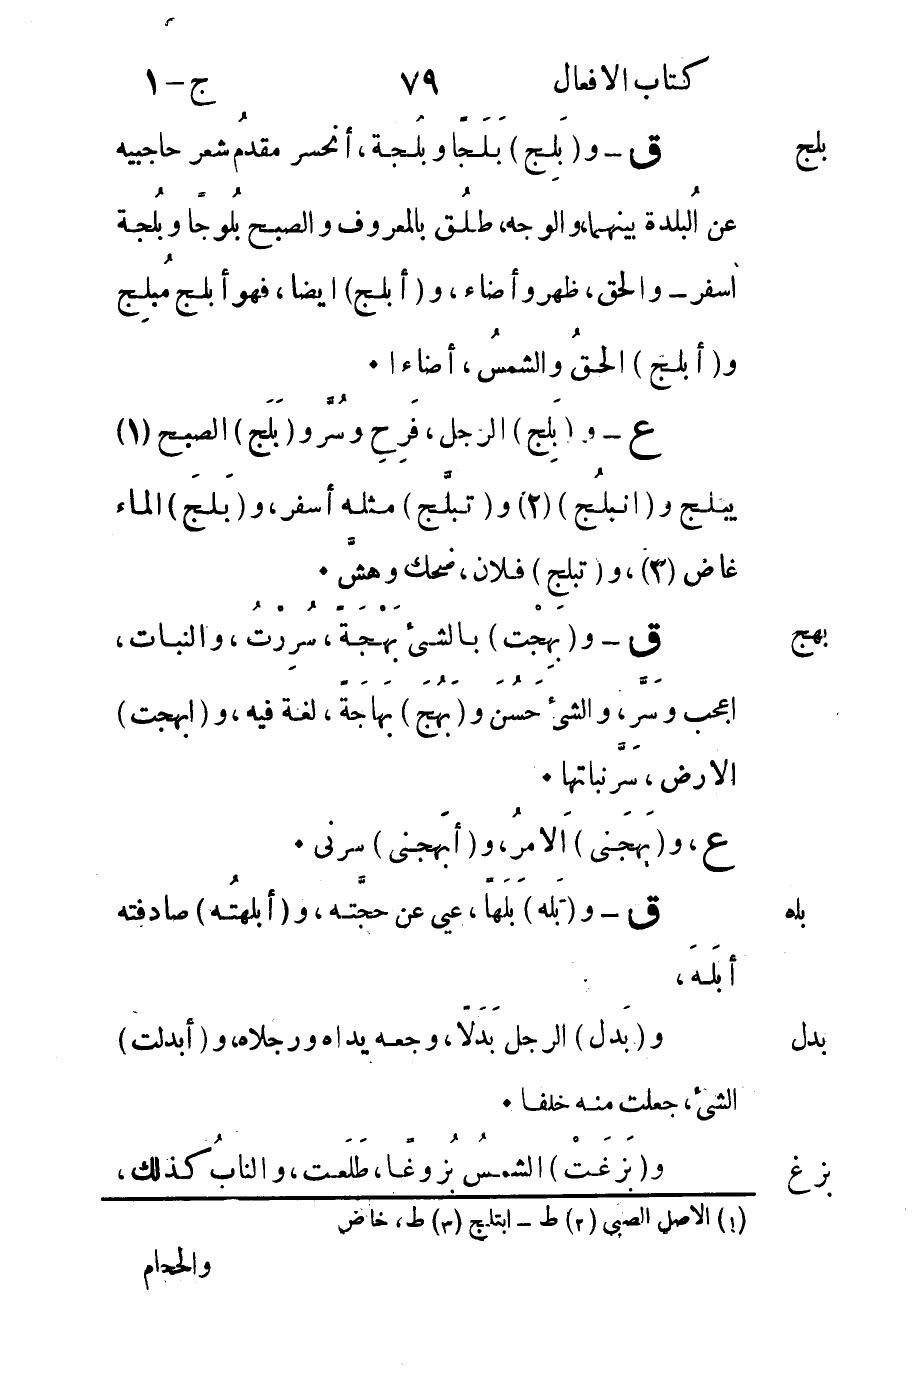 كتاب الافعال ٧٩ ج – ١
بلج ق – و (بَلِج) بَلَجًا و بُلجة، أنحسر مقدمُ شعر حاجبيه
عن البُلدة بينهما، و الوجه، طلُق بالمعروف و الصبح بُلوجًا و بُلجة
اسفر – و الحق، ظهر و أضاء، و (أبلج) ايضا، فهو أبلج مُبلِج
و (أبلج) الحقُ و الشمسُ، أضاءا ٠
ع – و (بَلِج) الرجل، فَرِح و سُرَّ و (بَلَج) الصبح (١)
يبلج و (انبلُج) (٢) و (تبلَّج) مثله أسفر، و (بَلَجَ) الماء
غاض (٣)، و (تبلج) فلان، ضحك و هشَّ ٠
بهج ق – و (بَهِجْت) بالشىٔ بَهْجَةً، سُرِرْتُ، و النبات،
اعجب و سَرَّ، و الشىٔ حَسُنَ و (بَهُجَ) بَهَاجَةً، لغة فيه، و (ابهجت)
الارض، سَرَّ نباتها ٠
ع، و (بَهَجَنى) الَامرُ، و (أبَهجنى) سرنى ٠
بله ق – و (بَلِه) بَلَهًا، عيى عن حجَّته، و (أبلهتُه) صادفته
أبَلَهَ،
بدل و (بَدل) الرجل بَدَلًا، و جعه يداه و رجلاه، و (أبدلت)
الشىٔ، جعلت منه خلفا ٠
بزغ و (بَزَغَتْ) الشمسُ بُزوغًا، طَلَعَت، و النابُ كذلك،
(١) الاصل الصبى (٢) ط – ابتلج (٣) ط، خاض
و الحجام